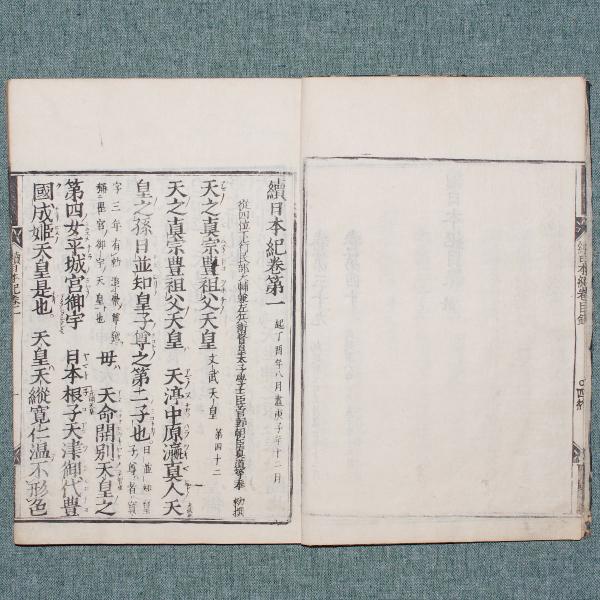 續日本紀卷目録
〇四終
續日本紀卷第一 起丁酉年八月盡庚子年十二月
從四位下行民部大輔兼左兵衛督皇太子學士臣菅野朝臣眞道等奉 勅撰
天之真宗豊祖父天皇 文武天皇 第四十二
天之真宗豊祖父天皇 天渟中原瀛真人天
皇之孫日並知皇子尊之第二子也 日並知皇子尊者寶
字三年有勅追崇尊號稱岡宮御宇天皇也 母 天命開別天皇之
第四女平城宮御宇 日本根子天津御代豊
國成姫天皇是也 天皇天縱寛仁温不形色
續日本紀卷一